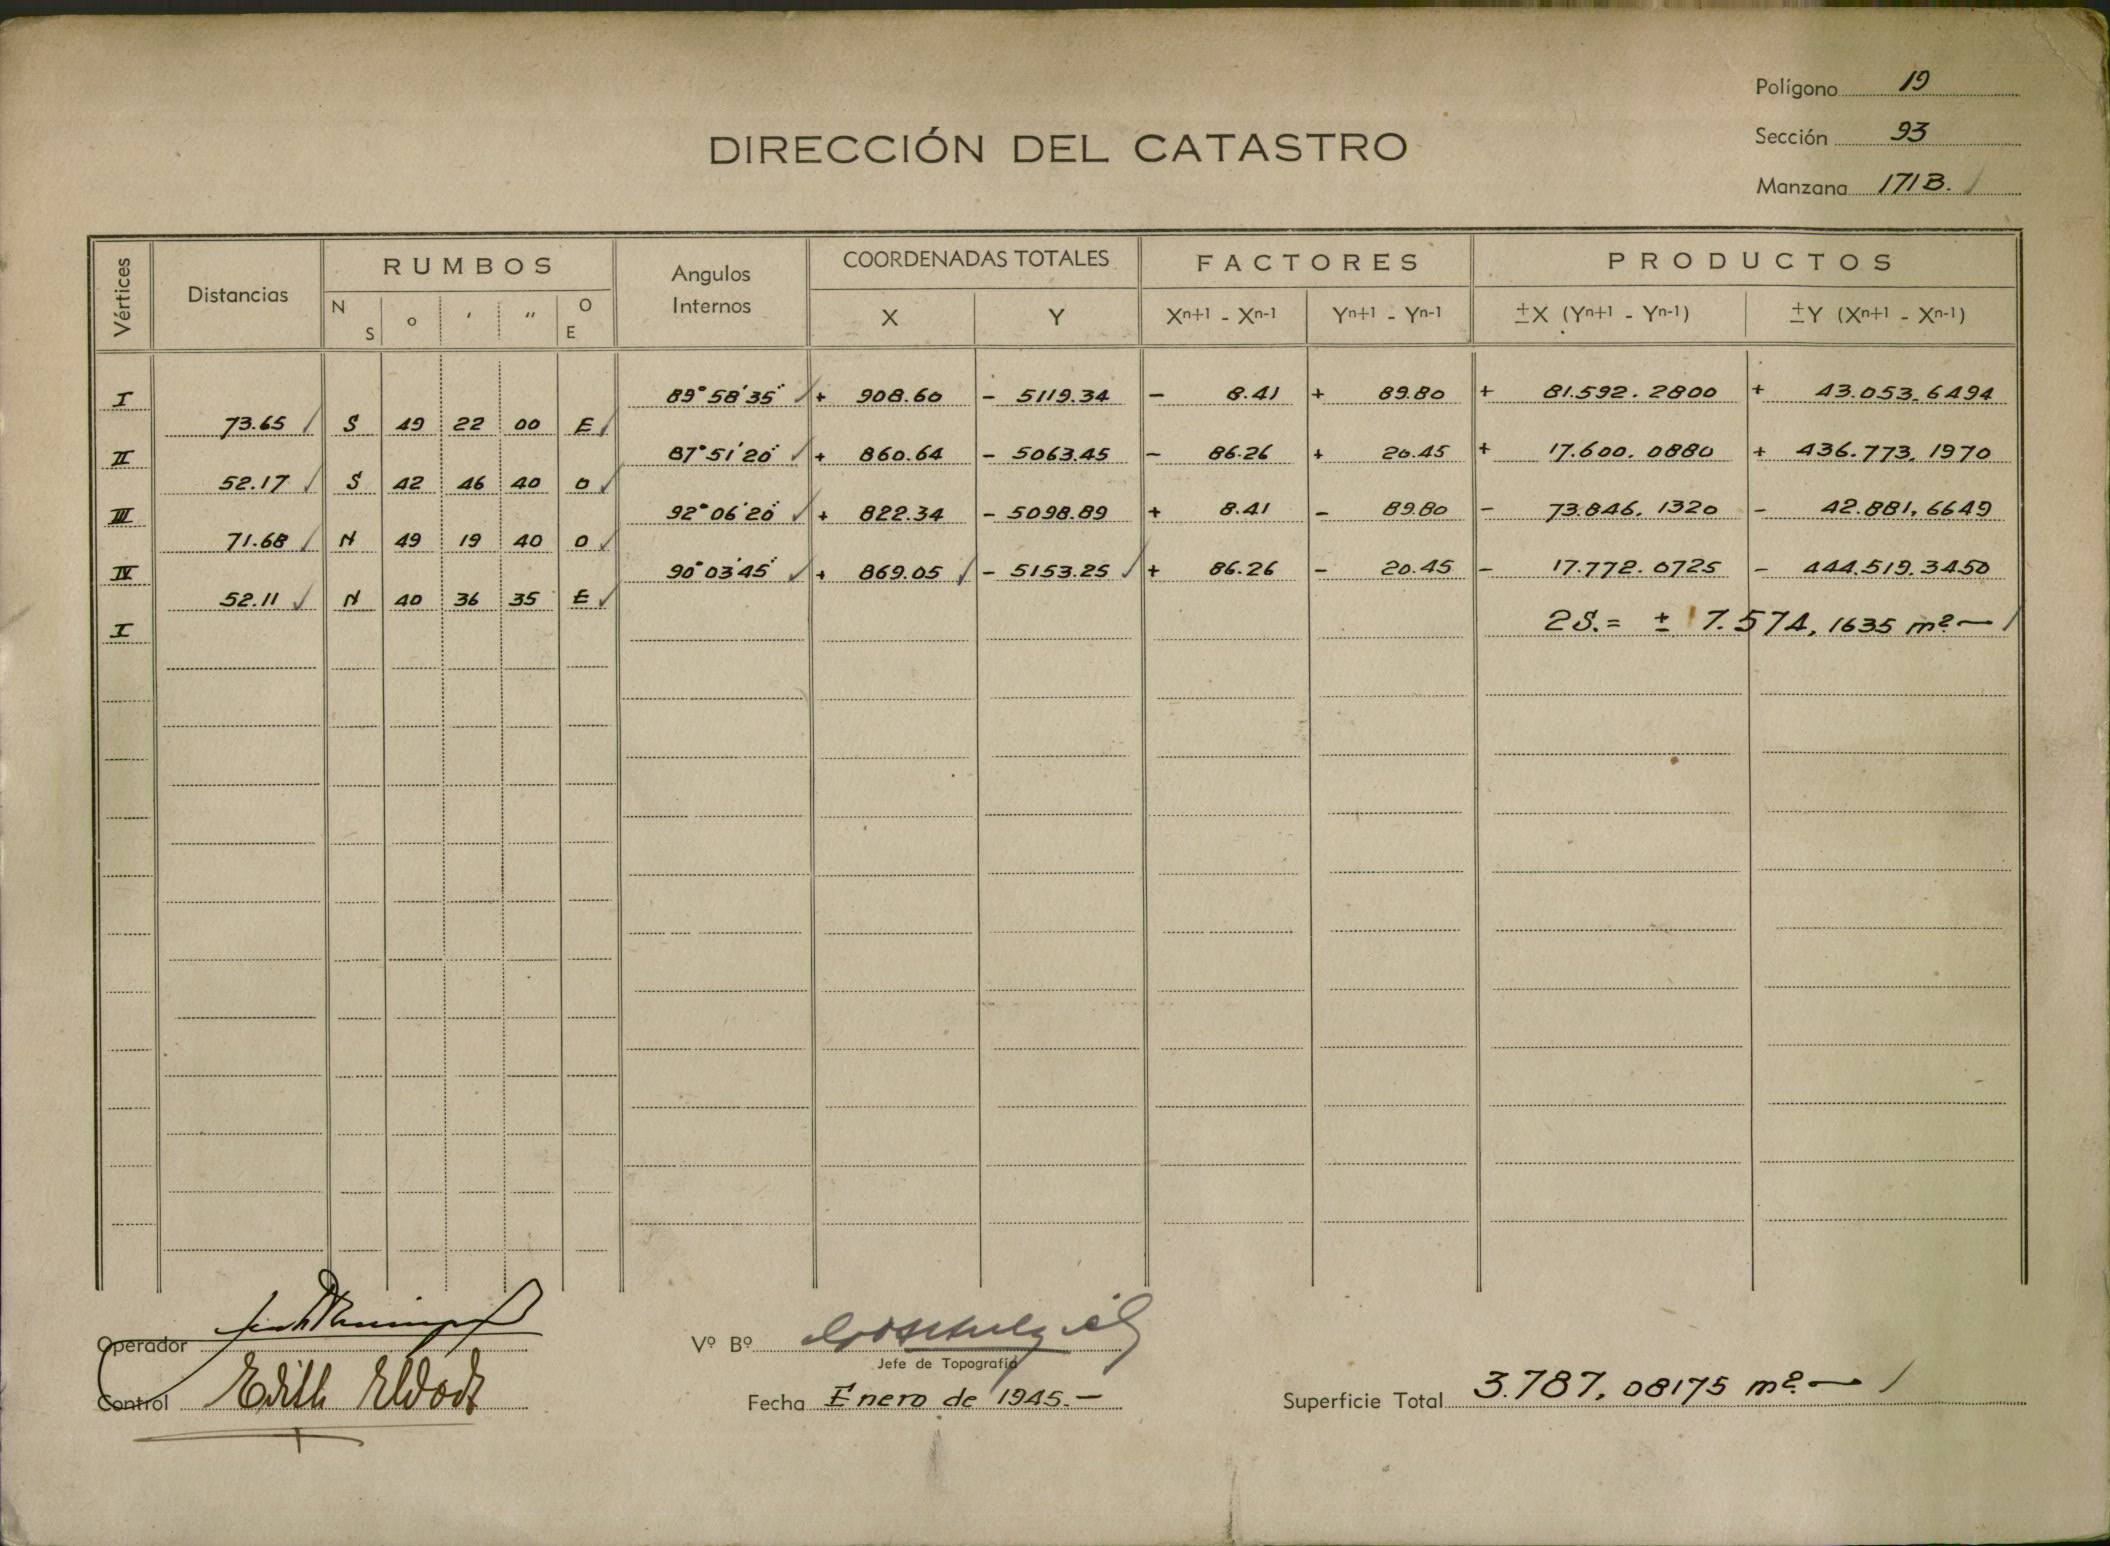 Polígono 19
DIRECCIÓN DEL CATASTRO
Sección 93
Manzana 171 B.
Vértices Distancias RUMBOS Angulos Internos COORDENADAS TOTALES FACTORES PRODUCTOS
N S o ' " O E X Y Xn+1 - Xn-1 Yn+1 - Yn-1 ±X (Yn+1 - Yn-1) ±Y (Xn+1 - Xn-1)
I 89° 58' 35" + 908.60 - 5119.34 - 8.41 + 89.80 + 81.592.2800 + 43.053.6494
73.65 S 49 22 00 E
II 87° 51' 20" + 860.64 - 5063.45 - 86.26 + 20.45 + 17.600.0880 + 436.773,1970
52.17 S 42 46 40 O
III 92° 06' 20" + 822.34 - 5098.89 + 8.41 - 89.80 - 73.846,1320 - 42.881,6649
71.68 N 49 19 40 O
IV 90° 03' 45" + 869.05 - 5153.25 + 86.26 - 20.45 - 17.772.0725 - 444.519.3450
52.11 N 40 36 35 E
I 2S. = ± 7.574,1635 m²
Operador
Vº Bº
Jefe de Topografía
Control Edith
Fecha Enero de 1945.-
Superficie Total 3.787,08175 m²